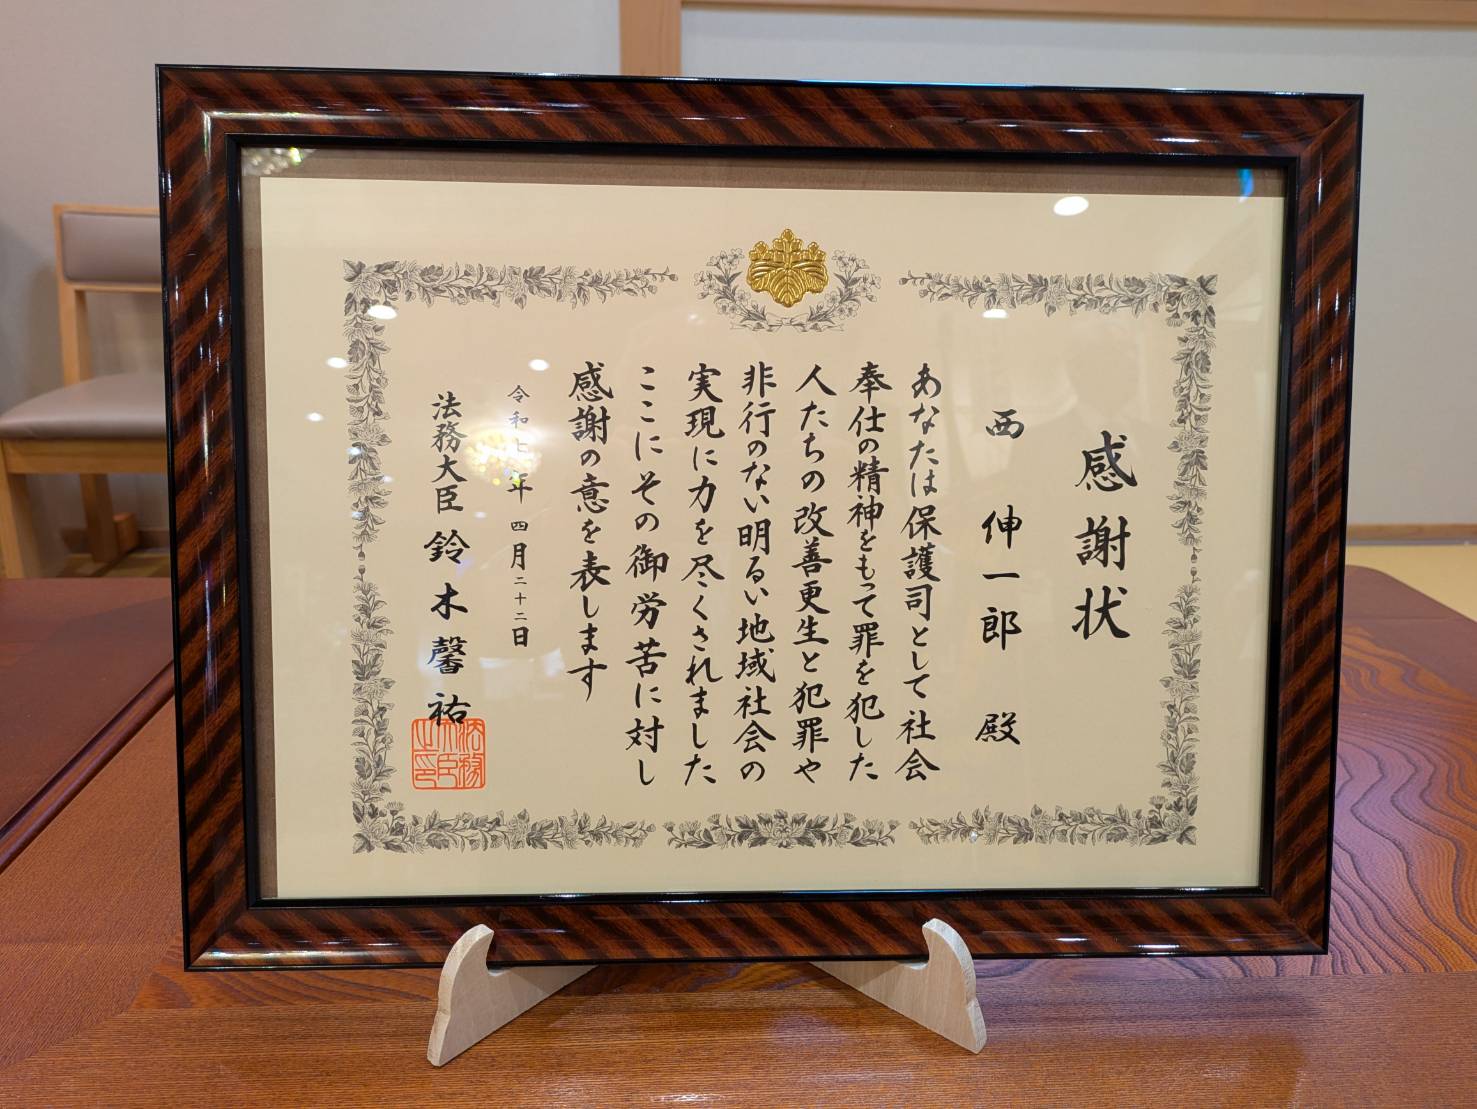 感謝状
西 伸一郎 殿
あなたは保護司として社会
奉仕の精神をもって罪を犯した
人たちの改善更生と犯罪や
非行のない明るい地域社会の
実現に力を尽くされました
ここにその御労苦に対し
感謝の意を表します
令和七年四月二十二日
法務大臣 鈴木馨祐
法務大臣之印